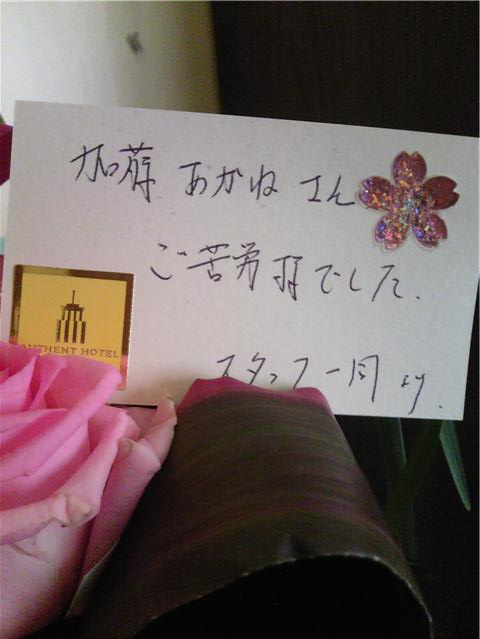 加藤 あかね さん
ご苦労様でした.
AUTHENT HOTEL
スタッフ一同 より.